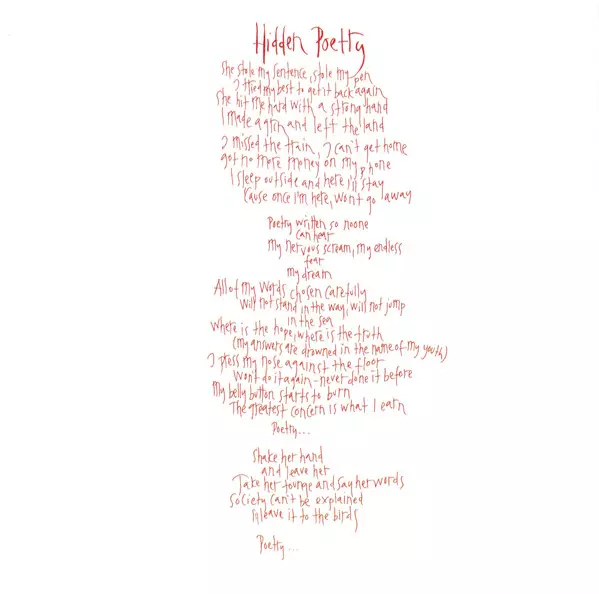 Hidden Poetry
She stole my sentence, stole my pen
I tried my best to get it back again
She hit me hard with a strong hand
I made a grin and left the land
I missed the train, I can't get home
got no more money on my phone
I sleep outside and here I'll stay
'Cause once I'm here, won't go away
Poetry written so noone
can hear
my nervous scream, my endless
fear
my dream
All of my words chosen carefully
Will not stand in the way, will not jump
in the sea
Where is the hope, where is the truth
(my answers are drowned in the name of my youth)
I press my nose against the floor
Won't do it again - never done it before
My belly button starts to burn
The greatest concern is what I earn
Poetry...
Shake her hand
and leave her
Take her tounge and say her words
Society can't be explained
I'll leave it to the birds
Poetry...